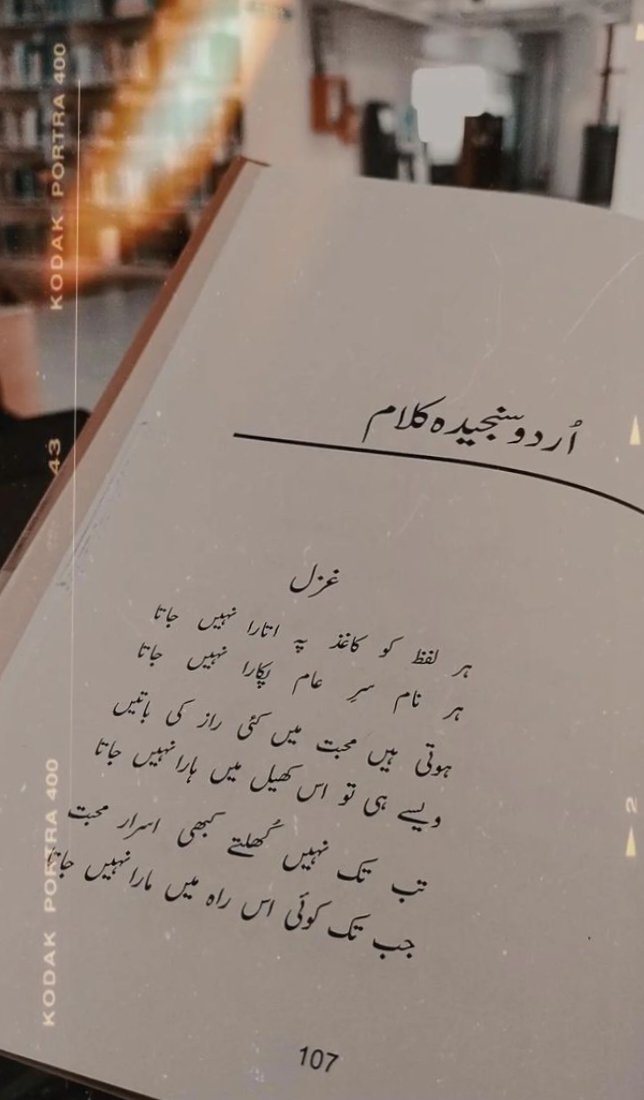 اُردو سنجیدہ کلام
غزل
ہر لفظ کو کاغذ پہ اتارا نہیں جاتا
ہر نام سرِ عام پکارا نہیں جاتا
ہوتی ہیں محبت میں کئی راز کی باتیں
ویسے ہی تو اس کھیل میں ہارا نہیں جاتا
تب تک نہیں کُھلتے کبھی اسرار محبت
جب تک کوئی اس راہ میں مارا نہیں جاتا
107
KODAK PORTRA 400
43
KODAK PORTRA 400
2